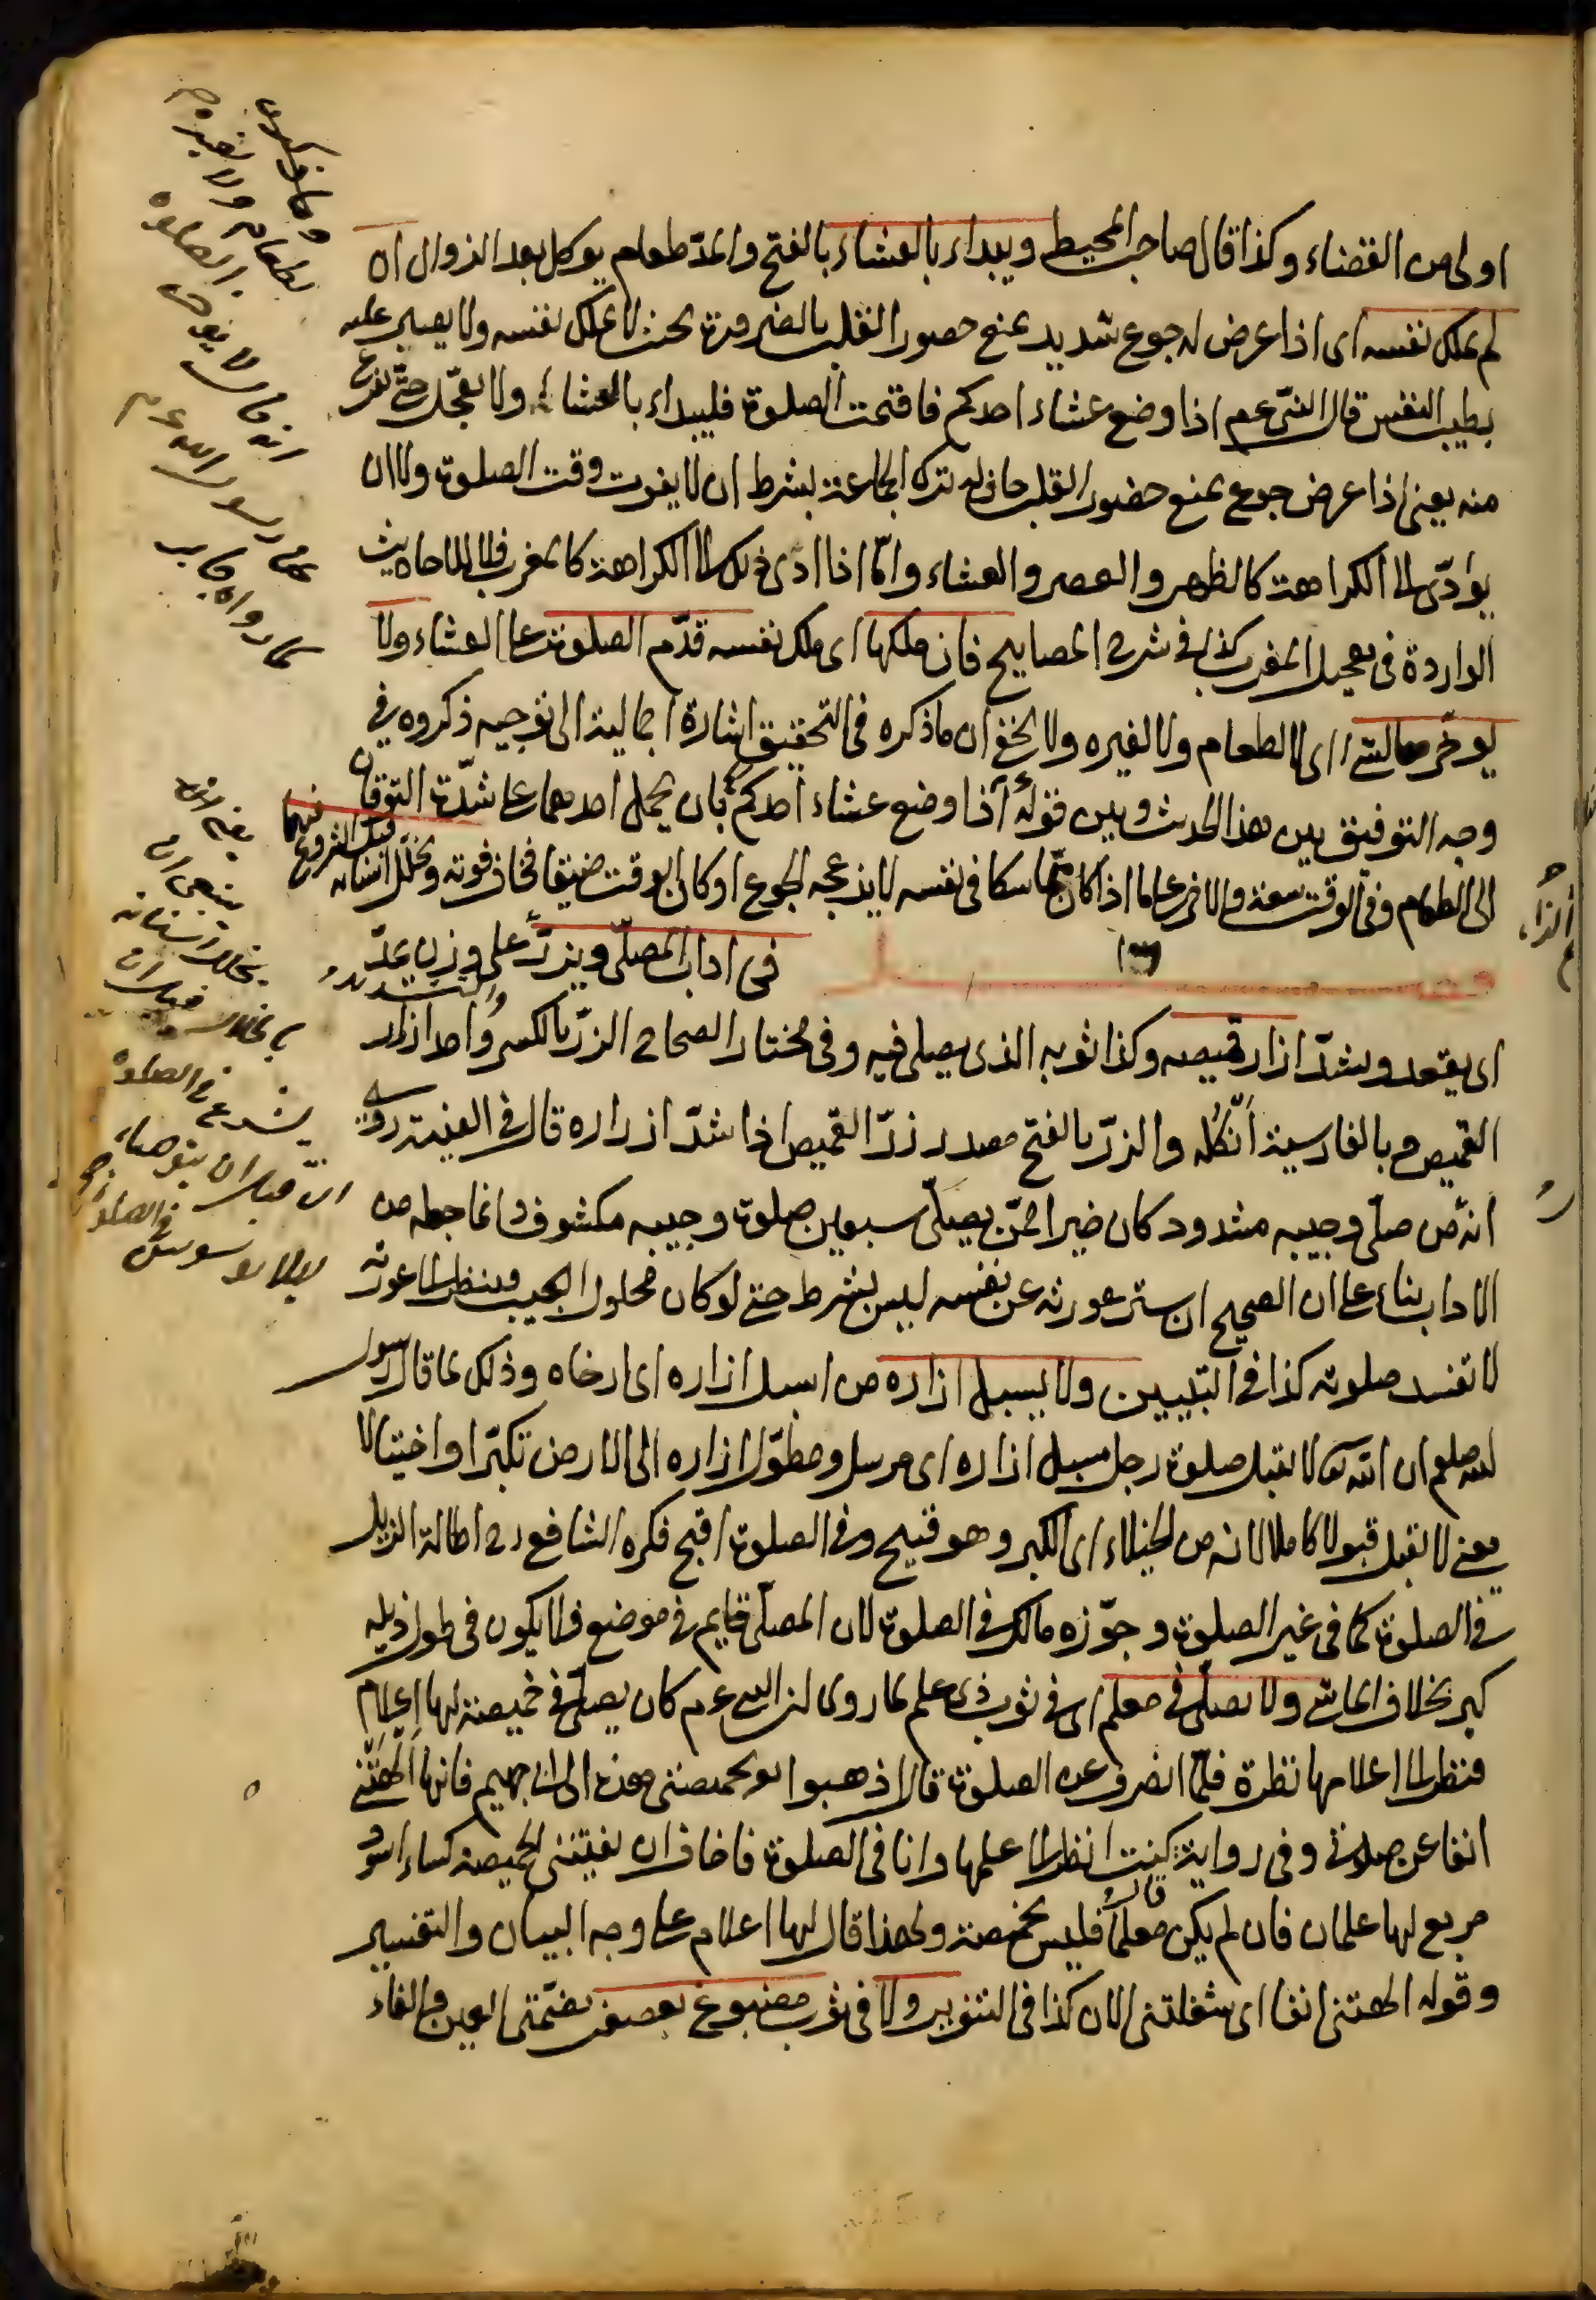 اولى من القضاء وكذا قال صاحب المحيط ويبداء بالعشاء بالفتح والمدّ طعام يوكل بعد الزوال ان
لم يملك نفسه اى اذا عرض له جوع شديد يمنع حضور القلب بالضرورة بحيث لا يملك نفسه ولا يصير عليه
بطيب النفس قال النبى عم اذا وضع عشاء احدكم فاقيمت الصلوة فليبداء بالعشاء ولا يعجّل حتّى يفرغ
منه يعنى اذا عرض جوع يمنع حضور القلب جاز له ترك الجماعة بشرط ان لا يفوت وقت الصلوة ولا ان
يؤدّى الى الكراهة كالظهر والعصر والعشاء وامّا اذا ادّى ذلك الى الكراهة كالمغرب فلا للاحاديث
الواردة فى تعجيل المغرب كذا فى شرح المصابيح فان ملكها اى ملك نفسه قدّم الصلوة على العشاء ولا
يوخّرها لشئ اى لا لطعام ولا لغيره ولا يخفى ان ما ذكره فى التحقيق اشارة اجمالية الى توجيه ذكروه فى
وجه التوفيق بين هذا الحديث وبين قوله اذا وضع عشاء احدكم بان يحمل احدهما على شدّة التوقان
الى الطعام وفى الوقت سعة والاخر على ما اذا كان متماسكا فى نفسه لا يزعجه الجوع او كان الوقت ضيقا فخاف فوته ويخلّل اسنانه
قبل الشروع فيها
فى اداب المصلّى ويزرّ على وزن يمدّ
والتشديد
اى يعقد ويشدّ ازار قميصه وكذا ثوبه الذى يصلى فيه وفى مختار الصحاح الزرّ بالكسر واحد ازرار
القميص وبالفارسية انكله والزرّ بالفتح مصدر زرّ القميص اذا شدّ ازراره قال فى الغنية روى
انه من صلّى وجيبه مشدود كان خيرا ممّن يصلّى سبعين صلوة وجيبه مكشوف وانما جعله من
الاداب بناء على ان الصحيح ان ستر عورته عن نفسه ليس بشرط حتى لو كان محلول الجيب فنظر الى عورته
لا تفسد صلوته كذا فى التبيين ولا يسبل ازاره من اسبل ازاره اى ارخاه وذلك لما قال رسول
الله صلعم ان الله تعالى لا يقبل صلوة رجل مسبل ازاره اى مرسل ومطوّل ازاره الى الارض تكبّرا واختيالا
يعنى لا يقبل قبولا كاملا لانه من الخيلاء اى الكبر وهو قبيح وفى الصلوة اقبح فكره الشافعى رح اطالة الذيل
فى الصلوة كما فى غير الصلوة وجوّزه مالك فى الصلوة لان المصلّى قايم فى موضع فلا يكون فى طول ذيله
كبر بخلاف الماشى ولا يصلّى فى معلم اى فى ثوب ذى علم لما روى ان النبى عم كان يصلّى فى خميصة لها اعلام
فنظر الى اعلامها نظرة فلمّا انصرف عن الصلوة قال اذهبوا بخميصتى هذه الى ابى جهيم فانها الهتنى
انفا عن صلاتى وفى رواية كنت انظر الى علمها وانا فى الصلوة فاخاف ان يفتننى الخميصة كساء اسود
مربع لها علمان فان لم يكن معلما فليس بخميصة ولهذا قال لها اعلام على وجه البيان والتفسير
وقوله الهتنى انفا اى شغلتنى الان كذا فى التنوير ولا فى ثوب مصبوغ بعصفر بضمّتى العين والفاء
وما ذكر من
لطعام ولا لغيره
الصلوة
انه قال لا يؤخر
رسول الله عم
كما رواه جابر
يعنى انه
ينبغى ان
يخلل اسنانه
قبل ان
يشرع فى الصلوة
قبل ان يتوضاء